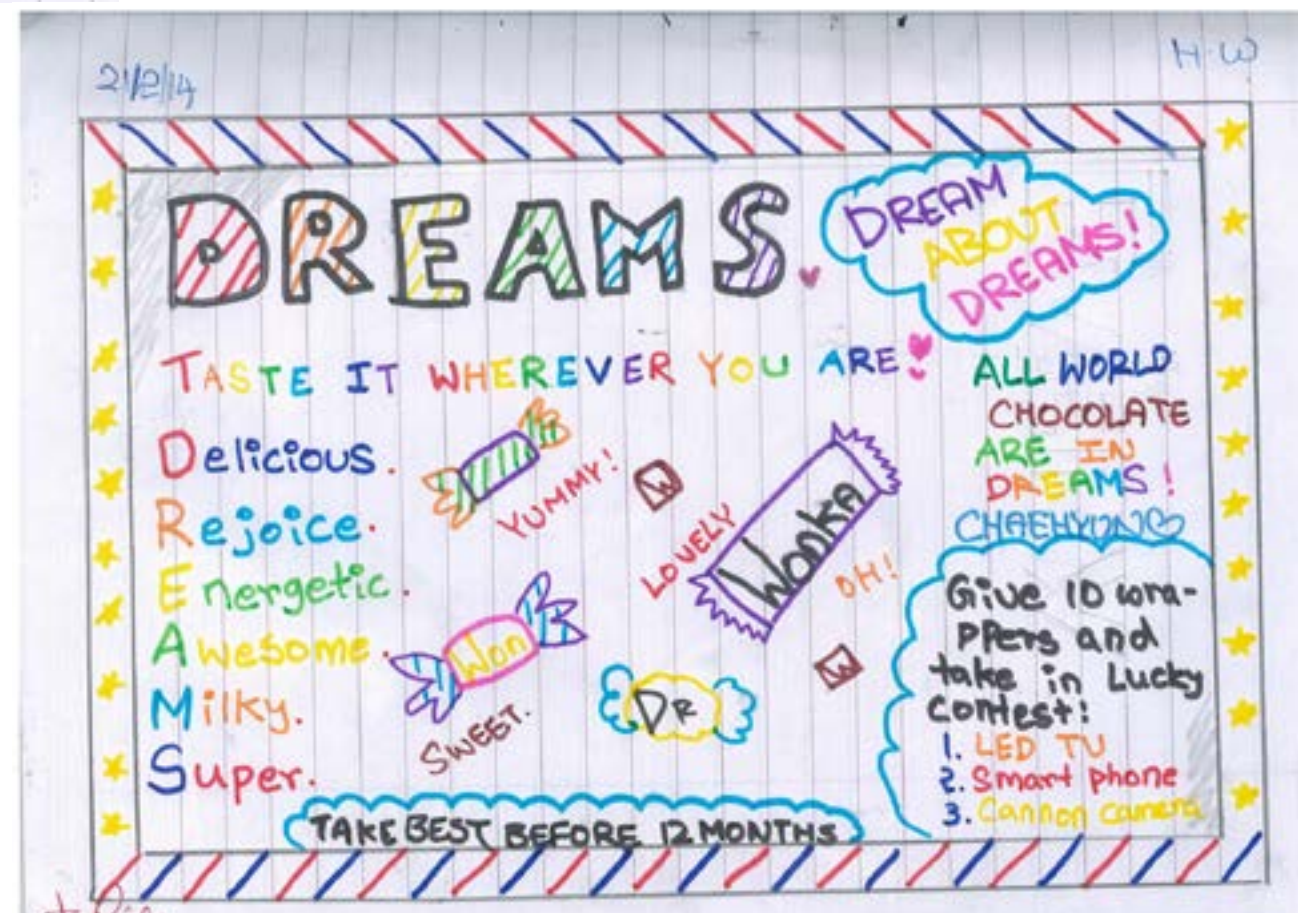 21/2/14
H.W
DREAMS.
DREAM
ABOUT
DREAMS!
TASTE IT WHEREVER YOU ARE!
ALL WORLD
CHOCOLATE
ARE IN
DREAMS!
CHAEHYUN
Delicious.
Rejoice.
Energetic.
Awesome.
Milky.
Super.
YUMMY!
W
LOVELY
WONKA
OH!
Won
SWEET.
DR
W
Give 10 wra-
ppers and
take in Lucky
Contest:
1. LED TV
2. Smart phone
3. Cannon camera
TAKE BEST BEFORE 12 MONTHS